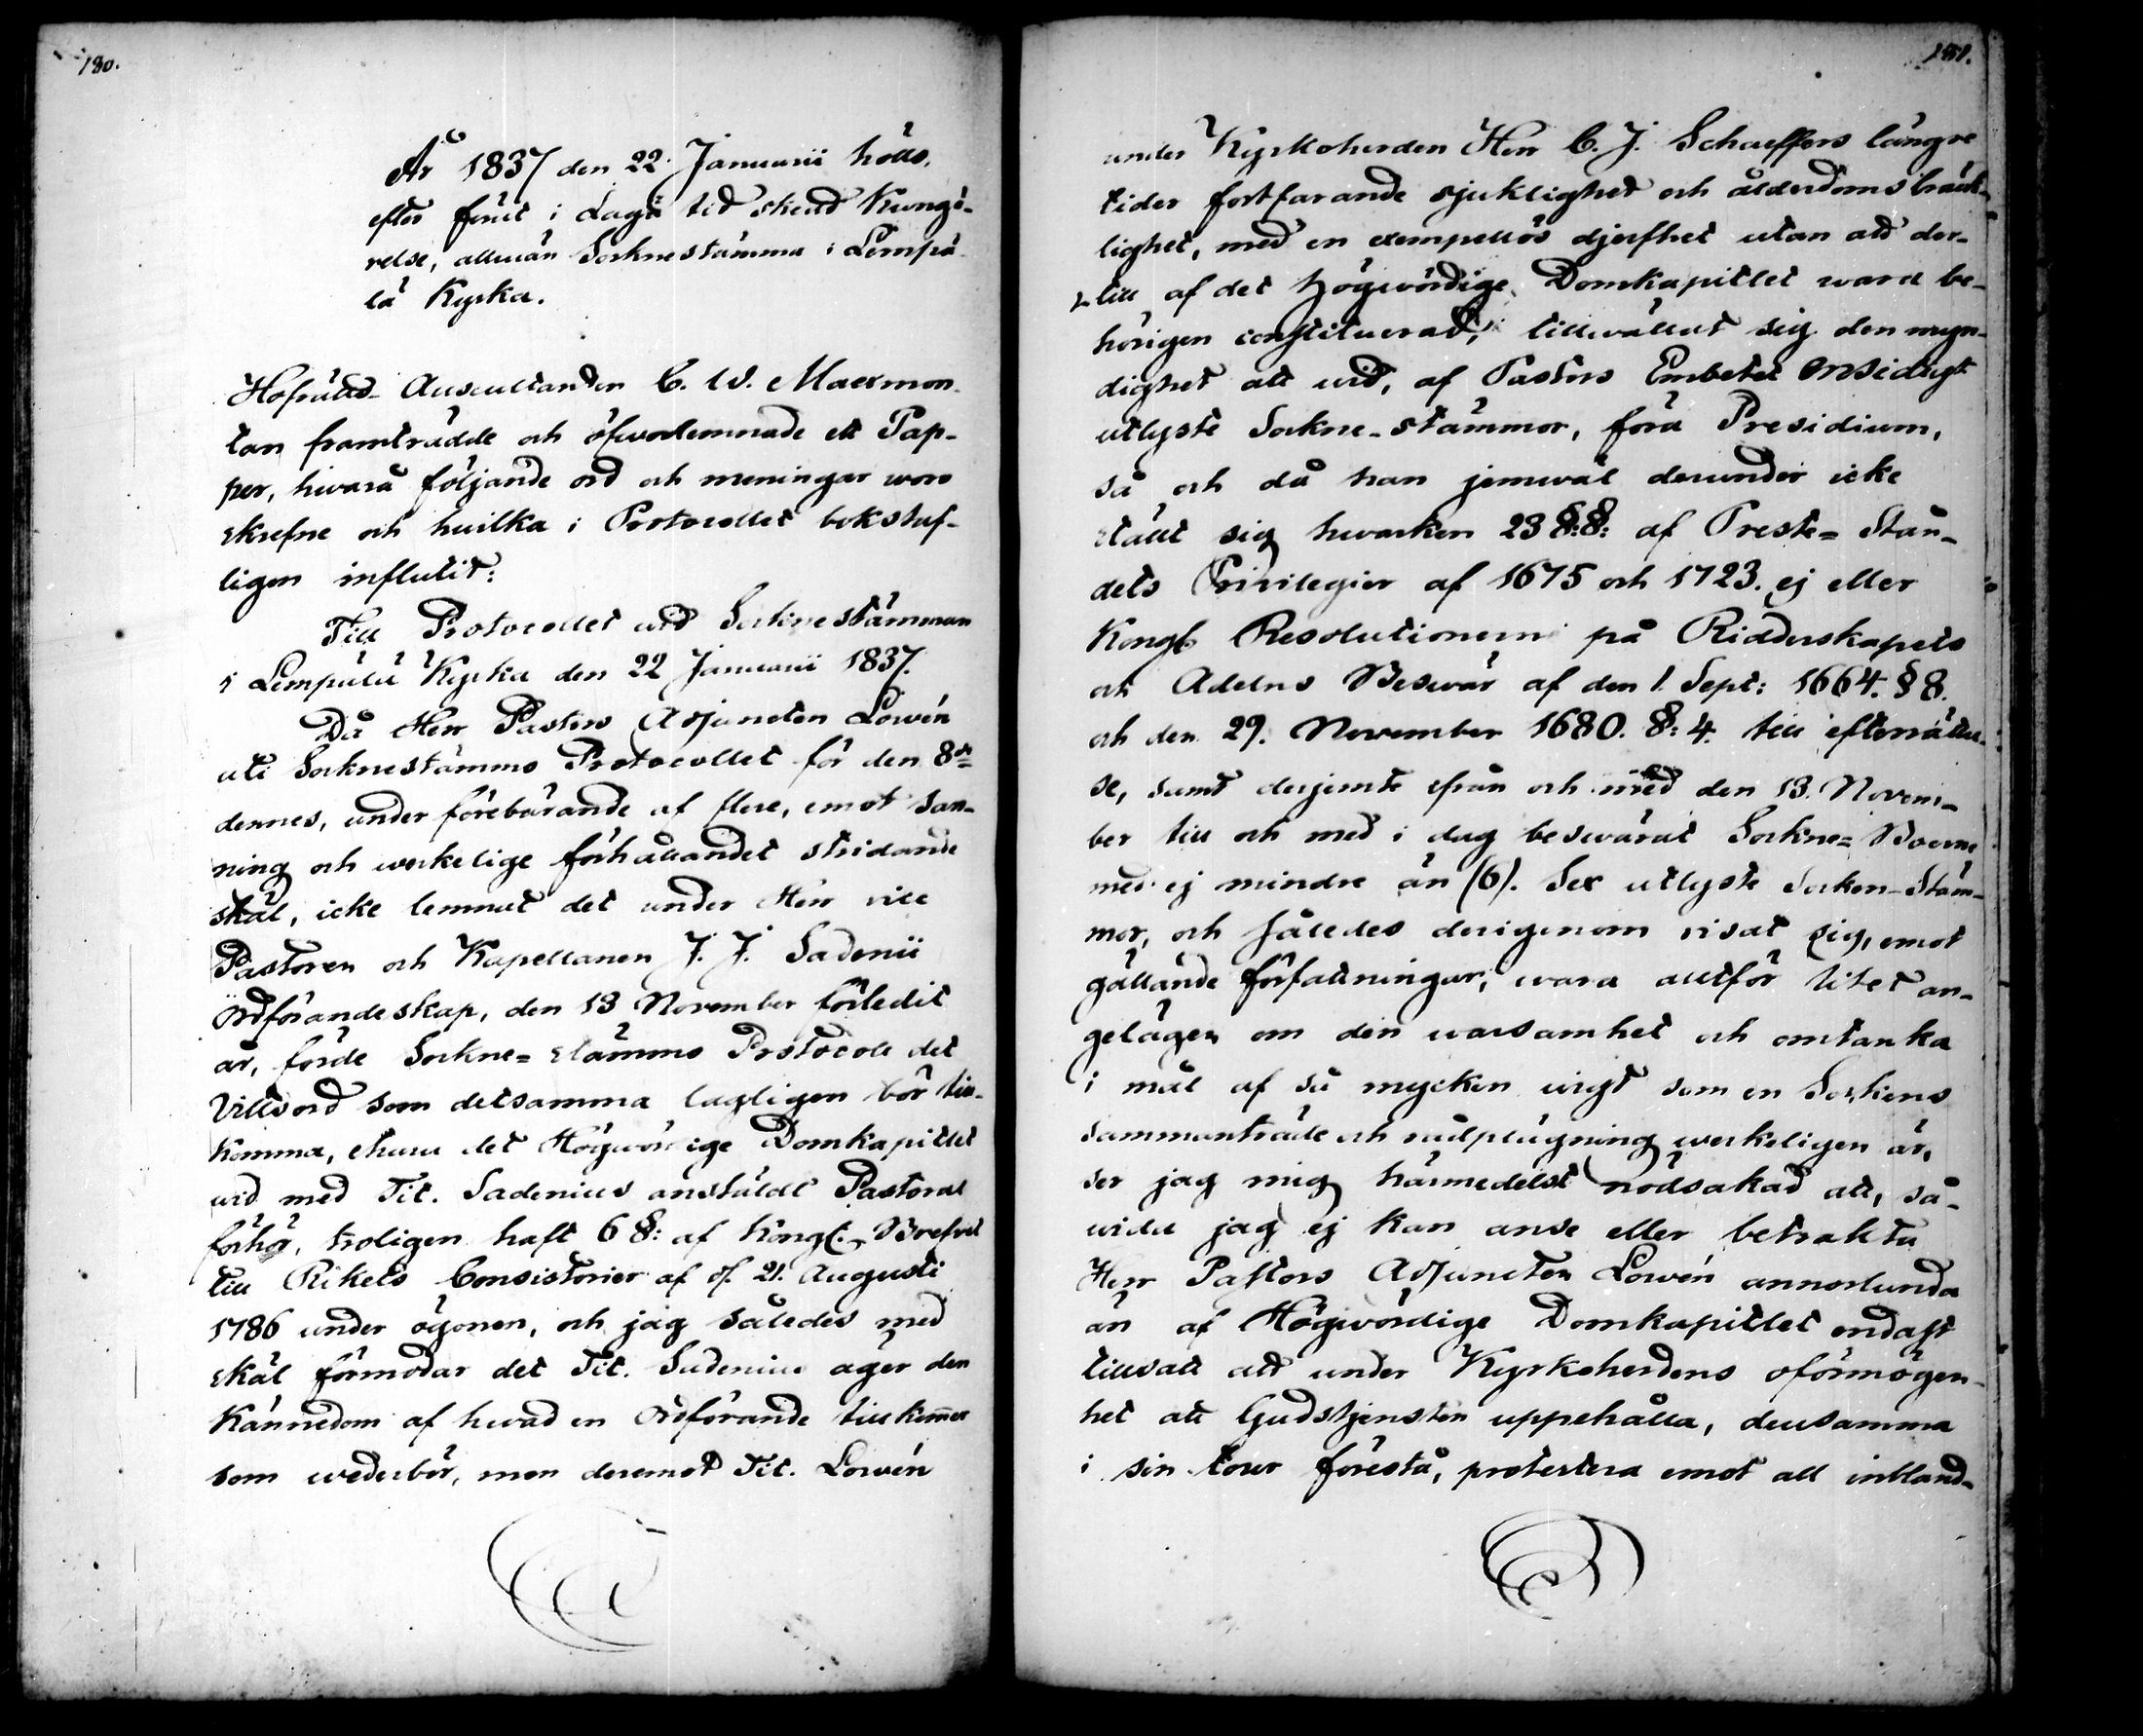 180.
År 1837 den 22 Januarii hölls,
efter förut i Laga tid skedd Kungö-
relse, allmän Sockne stämma i Lempä-
lä Kyrka.
Hofrätts- Auscultanten C. W. Maexmon-
tan framträdde och öfverlemnade ett Pap-
per, hvara följande ord och meningar voro
skrefne och hvilka i Protocollet bokstaf-
ligen influtit:
Till Protocollet vid Sockne stämman
i Lempälä Kyrka den 22 Januarii 1837.
Då Herr Pastors Adjuncten Lovén
uti Socknestämmo Protocollet för den 8de
dennes, under förebärande af flere, emot san-
ning och verkelige förhållandet stridande
skäl, icke lemnat det under Herr vice
Pastoren och Kapellanen J. J. Sadenii
Ordförandeskap, den 13 November förledit
år, förde Sockne= stämmo Protocoll det
Vittsord som detsamma lagligen bör till-
komma, ehuru det Högvördige Domkapitlet
vid med Tit. Sadenius anstäldt Pastoral
förhör, troligen haft 6 §: af Kongl. Brefvet
till Rikets Consistorier af d. 21. Augusti
1786 under ögonen, och jag således med
skäl förmodar det Tit. Sadenius äger den
Kännedom af hvad en Ordförande tillkommer
som vederbör, men deremot Tit. Lovén
181.
under Kyrkoherden Herr C. J. Schaeffers längre
tider fortfarande sjuklighet och ålderdoms bräck-
lighet, med en exempellös djerfhet utan att der-
till af det Högvördige Domkapitlet vara be-
hörigen constituerad, tillvällat sig den myn-
dighet att vid, af Pastors Embetet ensidigt
utlyste Sockne-stämmor, föra Presidium,
så och då han jemväl derunder icke
stält sig hvarken 23 §:§: af Preste= Stån-
dets Privilegier af 1675 och 1723. ej eller
Kongl. Resolutionerne på Ridderskapets
och Adelns Besvär af den 1. Sept: 1664. § 8.
och den 29. November 1680. §: 4. till efterrättel-
se, samt derjemte ifrån och med den 13. Novem-
ber till och med i dag besvärat Sockne= Boerne
med ej mindre än (6). Sex utlyste Socken-Stäm-
mor, och således derigenom visat sig, emot
gällande författningar, vara alltför litet an-
gelägen om den varsamhet och omtanka
i mål af så mycken vigt som en Sockens
sammanträde och rådplägning verkeligen är,
ser jag mig härmedelst nödsakad att, så-
vida jag ej kan anse eller betrakta
Herr Pastors Adjuncten Lovén annorlunda
än af Högvördige Domkapitlet endast
tillsatt att under Kyrkoherdens oförmögen-
het att Gudstjensten uppehålla, densamma
i sin tour förestå, protestera emot all inbland-